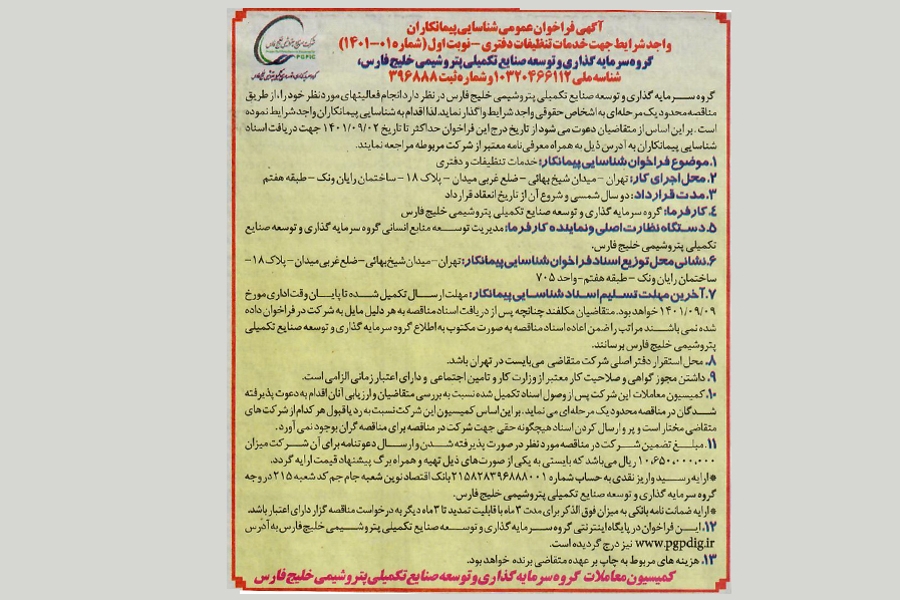 آگهی فراخوان عمومی شناسایی پیمانکاران
واجد شرایط جهت خدمات تنظیفات دفتری – نوبت اول (شماره ۰۱-۱۴۰۱)
گروه سرمایه گذاری و توسعه صنایع تکمیلی پتروشیمی خلیج فارس،
شناسه ملی ۱۰۳۲۰۴۶۶۱۱۲ و شماره ثبت ۳۹۶۸۸۸
PGPIC
گروه سرمایه گذاری و توسعه صنایع تکمیلی پتروشیمی خلیج فارس در نظر دارد انجام فعالیتهای مورد نظر خود را، از طریق
مناقصه محدود یک مرحله ای به اشخاص حقوقی واجد شرایط واگذار نماید. لذا اقدام به شناسایی پیمانکاران واجد شرایط نموده
است. بر این اساس از متقاضیان دعوت می شود از تاریخ درج این فراخوان حداکثر تا تاریخ ۱۴۰۱/۰۹/۰۲ جهت دریافت اسناد
شناسایی پیمانکاران به آدرس ذیل به همراه معرفی نامه معتبر از شرکت مربوطه مراجعه نمایند.
۱. موضوع فراخوان شناسایی پیمانکار: خدمات تنظیفات و دفتری
۲. محل اجرای کار: تهران – میدان شیخ بهائی – ضلع غربی میدان – پلاک ۱۸ – ساختمان رایان ونک – طبقه هفتم
۳. مدت قرارداد: دو سال شمسی و شروع آن از تاریخ انعقاد قرارداد
۴. کارفرما: گروه سرمایه گذاری و توسعه صنایع تکمیلی پتروشیمی خلیج فارس
۵. دستگاه نظارت اصلی و نماینده کارفرما: مدیریت توسعه منابع انسانی گروه سرمایه گذاری و توسعه صنایع
تکمیلی پتروشیمی خلیج فارس.
۶. نشانی محل توزیع اسناد فراخوان شناسایی پیمانکار: تهران – میدان شیخ بهائی – ضلع غربی میدان – پلاک ۱۸ –
ساختمان رایان ونک – طبقه هفتم – واحد ۷۰۵
۷. آخرین مهلت تسلیم اسناد شناسایی پیمانکار: مهلت ارسال تکمیل شده تا پایان وقت اداری مورخ
۱۴۰۱/۰۹/۰۹ خواهد بود. متقاضیان مکلفند چنانچه پس از دریافت اسناد مناقصه به هر دلیل مایل به شرکت در فراخوان داده
شده نمی باشند مراتب را ضمن اعاده اسناد مناقصه به صورت مکتوب به اطلاع گروه سرمایه گذاری و توسعه صنایع تکمیلی
پتروشیمی خلیج فارس برسانند.
۸. محل استقرار دفتر اصلی شرکت متقاضی می بایست در تهران باشد.
۹. داشتن مجوز گواهی و صلاحیت کار معتبر از وزارت کار و تامین اجتماعی و دارای اعتبار زمانی الزامی است.
۱۰. کمیسیون معاملات این شرکت پس از وصول اسناد تکمیل شده نسبت به بررسی متقاضیان و ارزیابی آنان اقدام به دعوت پذیرفته
شدگان در مناقصه محدود یک مرحله ای می نماید. بر این اساس کمیسیون این شرکت نسبت به رد یا قبول هر کدام از شرکت های
متقاضی مختار است و پر و ارسال کردن اسناد هیچگونه حقی جهت شرکت در مناقصه برای مناقصه گران بوجود نمی آورد.
۱۱. مبلغ تضمین شرکت در مناقصه مورد نظر در صورت پذیرفته شدن و ارسال دعوتنامه برای آن شرکت میزان
۱۰,۶۵۰,۰۰۰,۰۰۰ ریال می باشد که بایستی به یکی از صورت های ذیل تهیه و همراه برگ پیشنهاد قیمت ارایه گردد.
* ارایه رسید واریز نقدی به حساب شماره ۲۱۵۸۲۸۳۹۶۸۸۸۰۰۱ بانک اقتصاد نوین شعبه جام جم کد شعبه ۲۱۵ در وجه
گروه سرمایه گذاری و توسعه صنایع تکمیلی پتروشیمی خلیج فارس.
* ارایه ضمانت نامه بانکی به میزان فوق الذکر برای مدت ۳ ماه با قابلیت تمدید تا ۳ ماه دیگر به درخواست مناقصه گزار دارای اعتبار باشد.
۱۲. این فراخوان در پایگاه اینترنتی گروه سرمایه گذاری و توسعه صنایع تکمیلی پتروشیمی خلیج فارس به آدرس
www.pgpdig.ir نیز درج گردیده است.
۱۳. هزینه های مربوط به چاپ بر عهده متقاضی برنده خواهد بود.
کمیسیون معاملات گروه سرمایه گذاری و توسعه صنایع تکمیلی پتروشیمی خلیج فارس